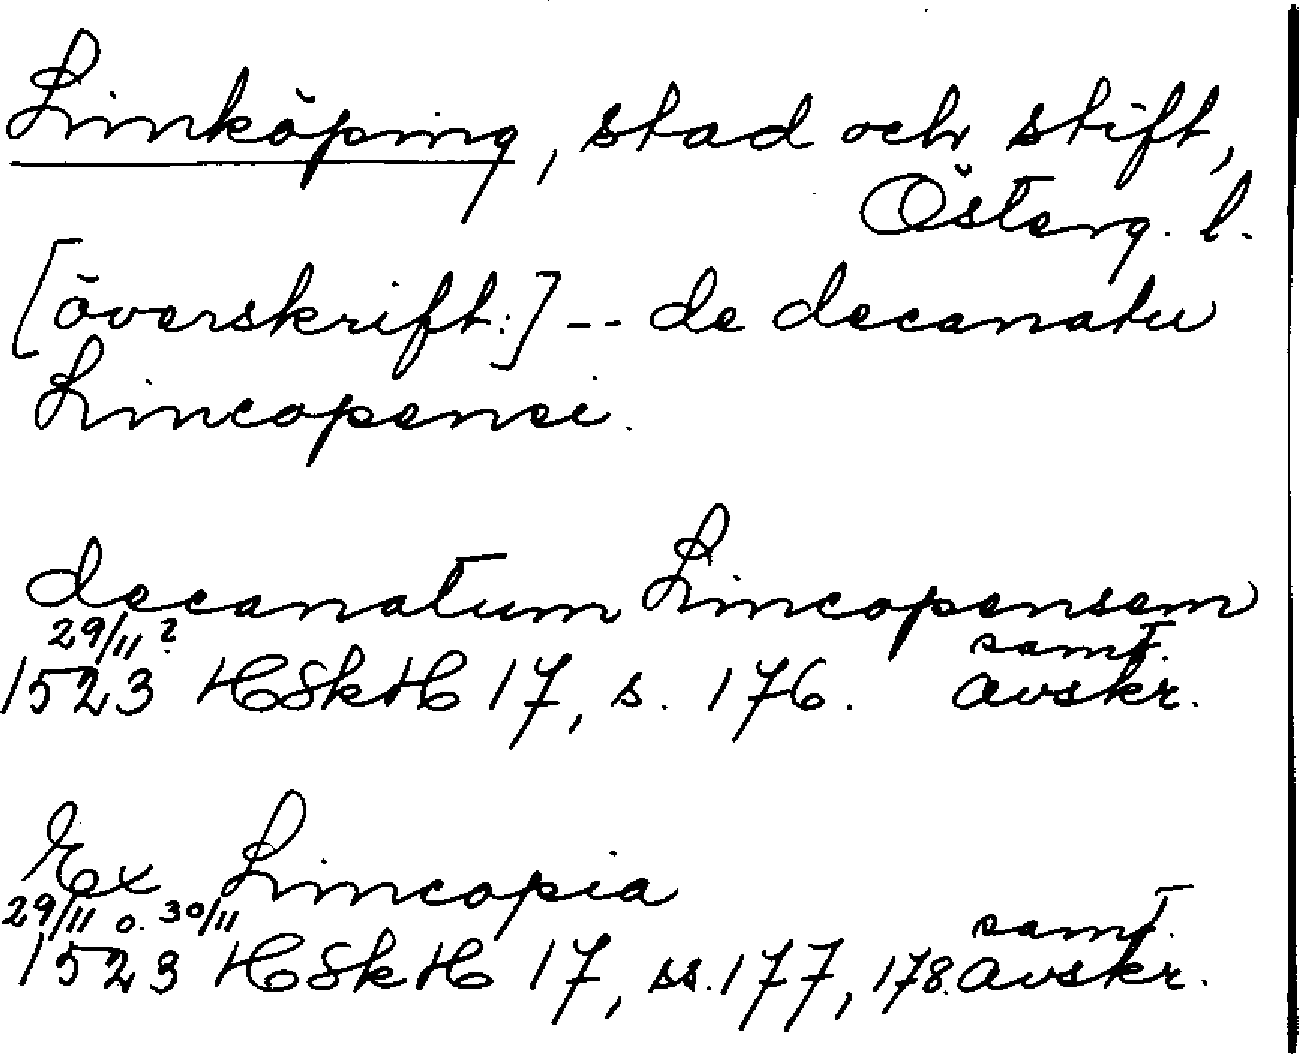 Linköping, stad och stift,
Österg. l.
[överskrift:] -- de decanatu
Lincopensi.
decanatum Lincopensem
29/11 ? samt.
1523 HSkH 17, s. 176. avskr.
Ex Lincopia
29/11 o. 30/11 samt.
1523 HSkH 17, ss. 177, 178. avskr.